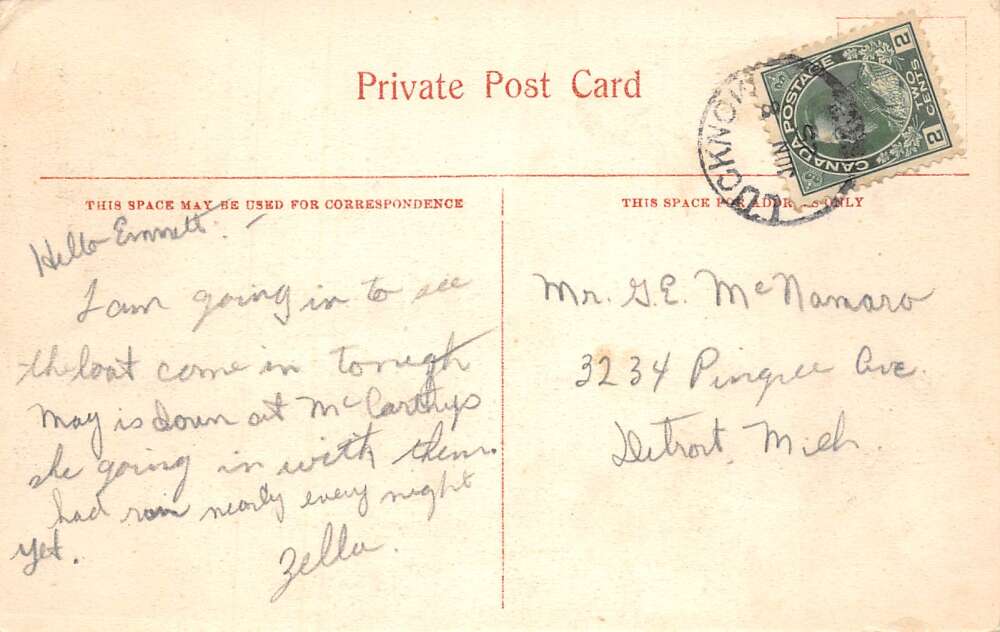 Private Post Card
CANADA POSTAGE
2 TWO CENTS 2
LUCKNOW
JUN
THIS SPACE MAY BE USED FOR CORRESPONDENCE
THIS SPACE FOR ADDRESS ONLY
Hello Emmett. —
I am going in to see
the boat come in tonigh
May is down at McCarthys
she going in with them.
had rain nearly every night
yet.
Zella.
Mr. G.E. McNamara
3234 Pingree Ave.
Detroit, Mich.